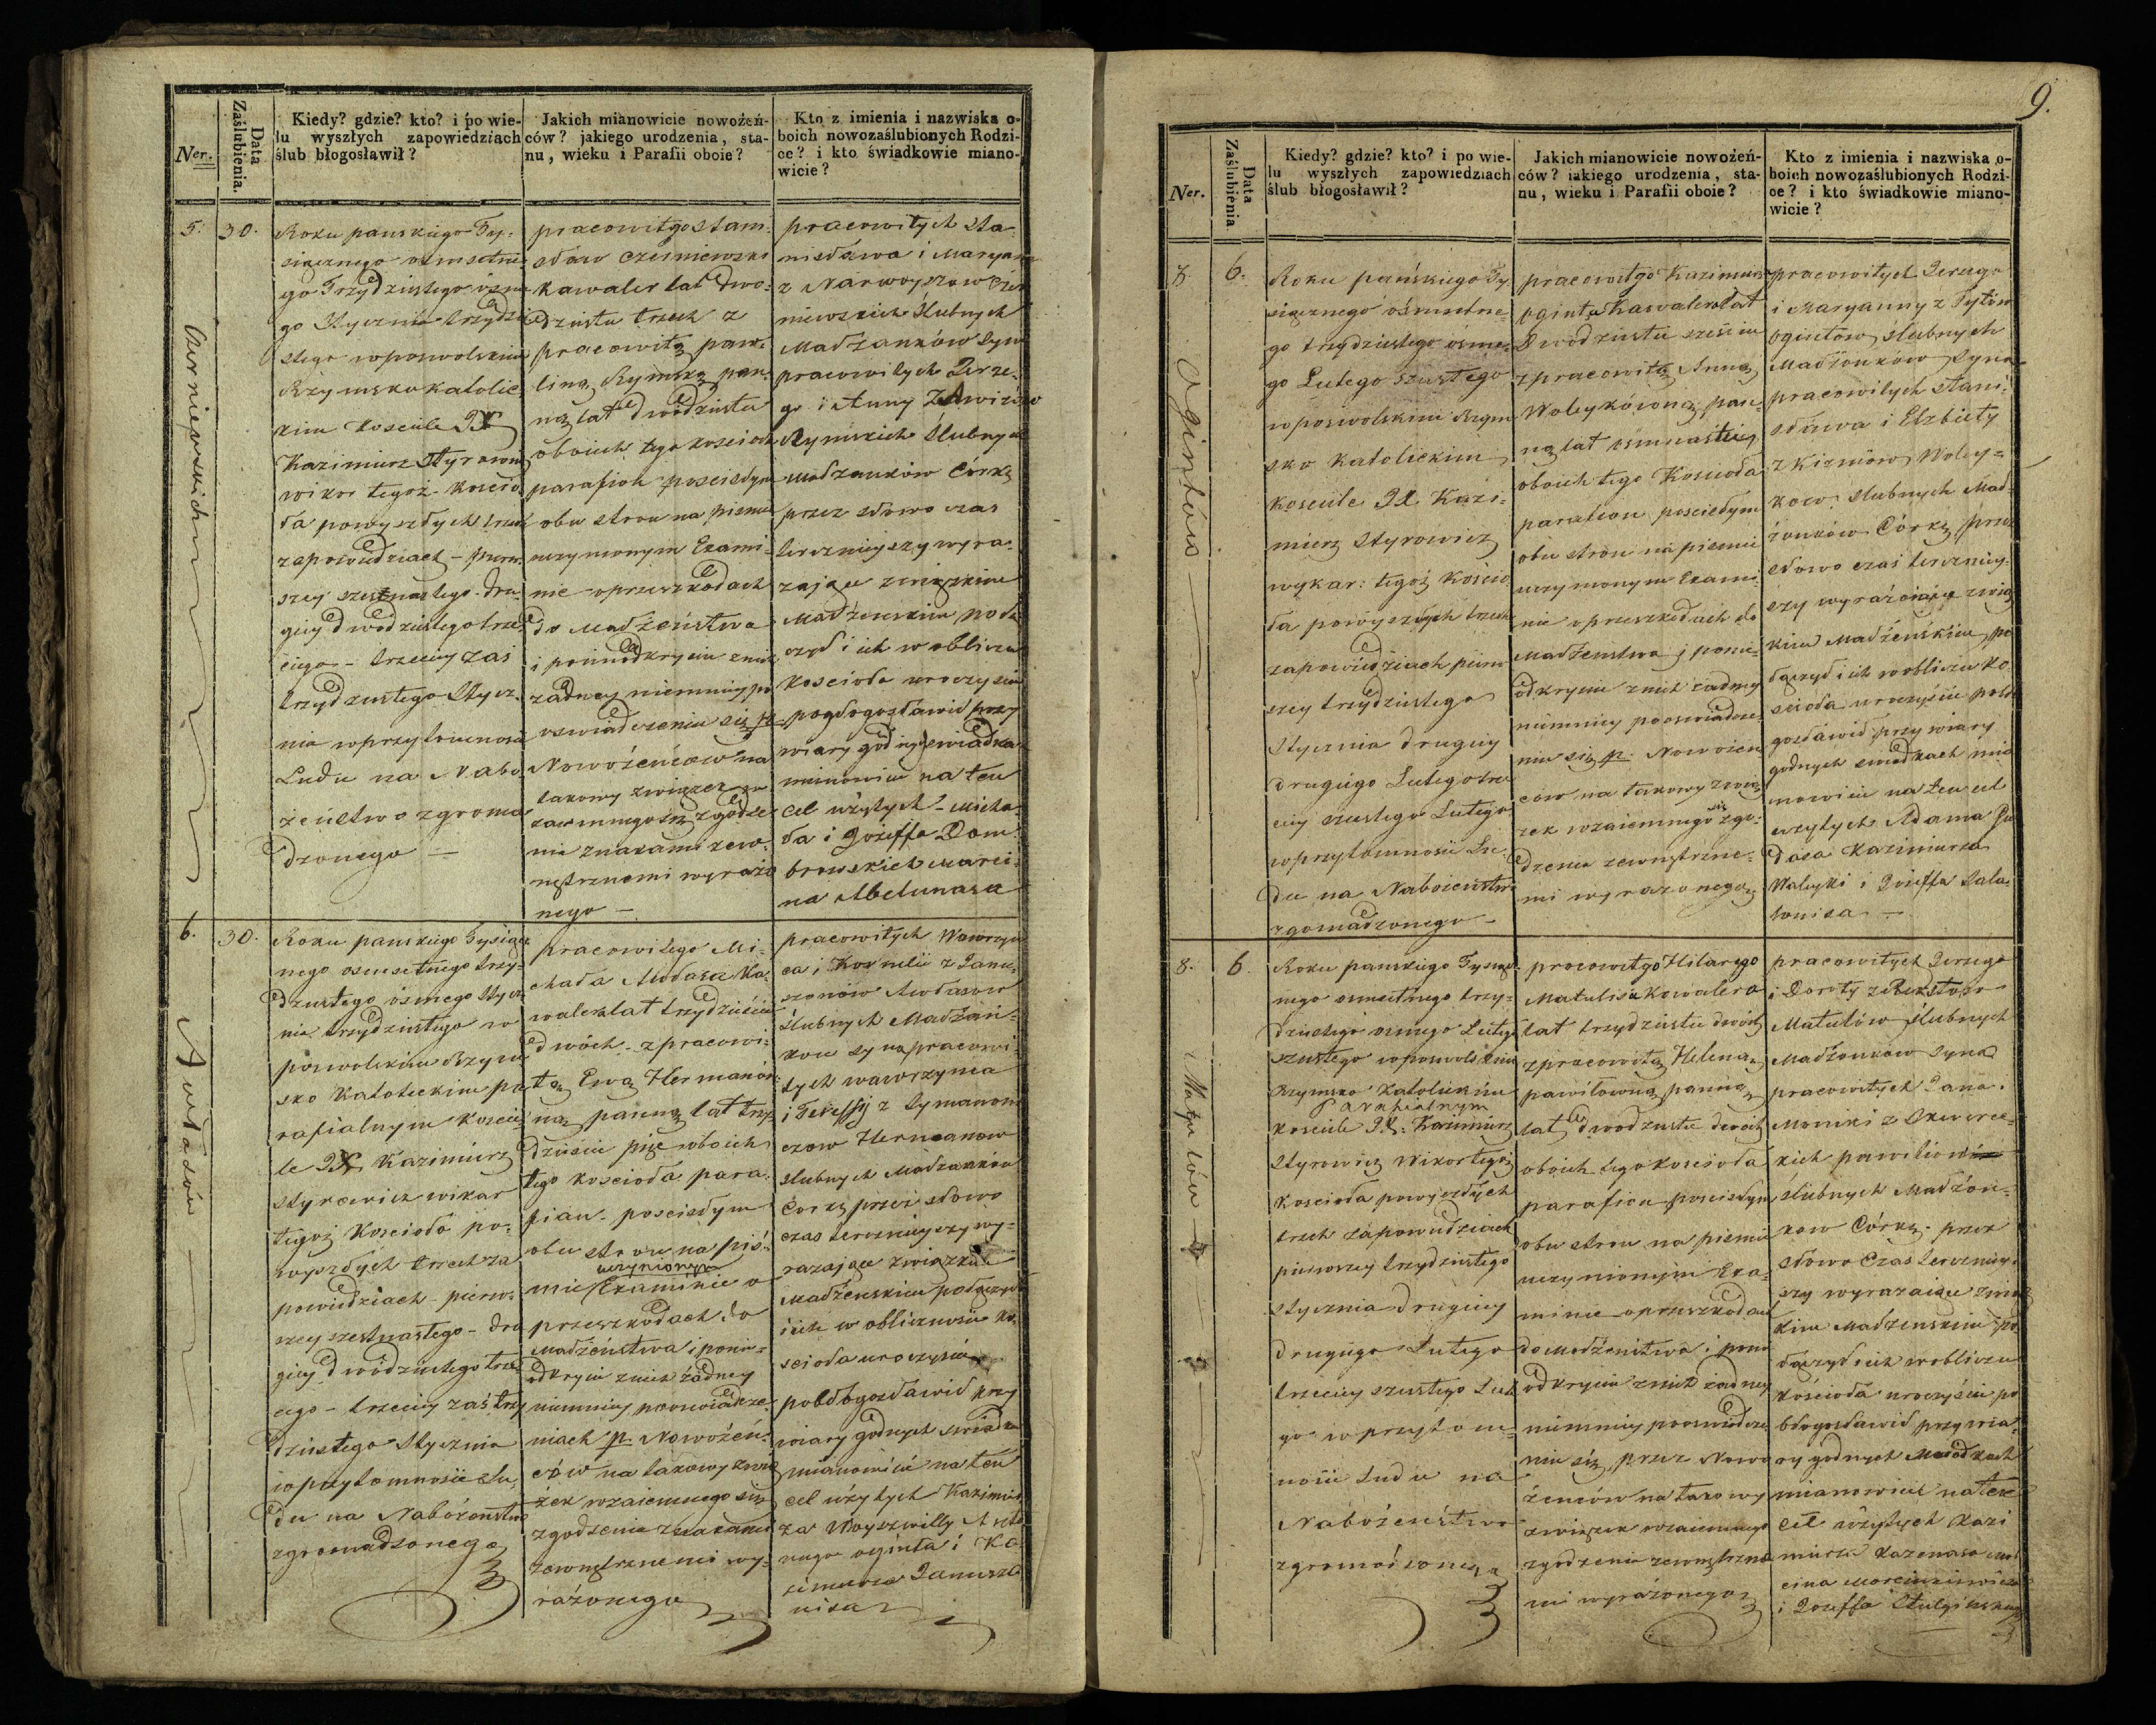 Ner.
Data
Zaślubienia.
Kiedy? gdzie? kto? i po wie-
lu wyszłych zapowiedziach
ślub błogosławił?
Jakich mianowicie nowożeń-
ców? jakiego urodzenia, sta-
nu, wieku i Parafii oboie?
Kto z imienia i nazwiska o-
boich nowozaślubionych Rodzi-
ce? i kto świadkowie miano-
wicie?
5.
30.
Czerniewskich
Roku panskiego Ty-
siącznego osmsetne-
go Trzydziestego ósme
go Stycznia trzydzie
stego w poswolskim
Rzymsko katolic
kim Kosciele JX
Kazimierz Styrowicz
wikar tegoż koscio
ła powyszłych trzech
zapowiedziach - pierw
szey szestnastego - dru
giey dwodziestego trze
ciego - trzeciey zas
trzydziestego Stycz
nia w przytomnosci
Ludu na Nabo
żeństwo zgroma
dzonego -
pracowitgo Stani
sław Czerniewski
kawaler lat dwo
dziestu trzech z
pracowitą paw
liną Rymską pan
ną lat dwódziestu
oboich tego kosciola
parafian poscisłym
obu stron na pismie
uczynionym Exami
nie - oprzeszkodach
do Małżeństwa
i ponieodkryciu znich
żadney niemniey po
oswiadczeniu się p
Nowożeńców na
takowy związek
wzaiemnego się zgodze
nia znakami zew
nętrznemi wyrażo
nego -
pracowitych Sta
nisława i Maryanny
z Narwoyszow Czer
niewskich Ślubnych
Małżonków Syn
pracowitych Jerze
go i Anny
Rymskich Ślubnych
Małżonków Córkę
przez słowo czas
terazniejszy wyra
zające związkiem
Małżenskim połą
czył i ich w obliczu
Kościoła uroczyscie
pogłogosławił przy
wiary godnych swiadkach
mianowicie na ten
cel użytych - Micha
ła i Jozeffa Dom
browskich Marci
na Abelunasa
6.
30.
Awłasów
Roku panskiego Tysiącz
nego osmsetnego trzy
dziestego ósmego Stycz
nia trzydziestego w
poswolskim Rzym
sko Katolickim pa
rafialnym kosciele
JX Kazimierz
Styrowicz wikar
tegoż Kościoła po
wyszłych trzech za
powiedziach - pierw
szey szestnastego - dru
giey dwódziestego trze
ciego - trzeciey zaś trzy
dziestego Stycznia
w przytomnosci Lu
du na Nabożenstwo
zgromadzonego
pracowitego Mi
chała Awłasa Ka
walera lat trzydziestu
dwóch - z pracowi
tą Ewą Hermanów
ną panną lat trzy
dziestu pięc oboich
tego koscioła para
fian - poscisłym
obu stron na piś
mie uczynionym Examinie o
przeszkodach do
Małżeństwa i ponie
odkryciu znich żadney
niemniey pooswiadcze
niach p. Nowożeń
ców na takowy zwią
zek wzaiemnego się
zgodzenia znakami
zewnętrznemi wy
rażonego
pracowitych Wawrzyn
ca i Kornelii z Janu
szonów Awłasow
Ślubnych Małżon
kow Syna pracowi
tych wawrzynca
i Teressy z Symanow
czow Hermanow
slubnych Małżonków
Corkę przez słowo
czas terazniejszy wy
rażające związkiem
Małżenskim połączył
i ich w obliczności Ko
scioła uroczyscie
pobłogosławił przy
wiary godnych swiadka
mianowicie na ten
cel użytych Kazimie
rza Woyszwilly Anto
niego oginta i Ka
zimierza Janusza
nisa
9.
Ner.
Data
Zaślubienia
Kiedy? gdzie? kto? i po wie-
lu wyszłych zapowiedziach
ślub błogosławił?
Jakich mianowicie nowożeń-
ców? iakiego urodzenia, sta-
nu, wieku i Parafii oboie?
Kto z imienia i nazwiska o-
boich nowozaślubionych Rodzi-
ce? i kto świadkowie miano-
wicie?
7.
6.
Ogintów
Roku pańskiego Ty
siącznego ośmsetne
go trzydziestego ósme
go Lutego szustego
w poswolskim Rzym
sko Katolickim
kosciele JX Kazi
mierz Styrowicz
wykar: tegoż Koscio
ła powyszłych trzech
zapowiedziach pierw
szey trzydziestego
Stycznia drugiey
drugiego Lutego trze
ciey szustego Lutego
w przytomnosci Lu
du na Nabożenstwo
zgomadzonego -
pracowitgo Kazimierz
oginta Kawalera lat
dwódziestu sześciu
z pracowitą Anną
Woleykówną pan
ną lat osmnastu
oboich tego Koscioła
parafian poscisłym
obu stron na pismie
uczynionym Exami
nie o przeszkodach do
Małżenstwa i ponie
odkryciu znich żadney
niemniey pooswiadcze
niu się p. Nowożen
cow na takowy zwią
zek wzaiemnego się zgo
dzenia zewnętrzne
mi wyrazonego
pracowitych Jerzego
i Maryanny z Tytów
ogintow slubnych
Małżonków Syna
pracowitych Stani
sława i Elzbiety
z Kizniow Woley
kow slubnych Mał
żonków Córkę przez
słowo czas terazniey
szy wyrażające związ
kiem Małżeńskim po
łączył i ich w obliczu Ko
scioła uroczyście pobło
gosławił przy wiary
godnych swiadkach mia
nowicie na ten cel
użytych Adama
Kazimierza
Waleyki i Jozeffa Sala
tonisa -
8.
6.
Matulów
Roku panskiego Tysiącz
nego osmsetnego trzy
dziestego osmego Lutego
szustego w poswolskim
Rzymsko Katolickim
parafialnym
kosciele JX. Kazimierz
Styrowicz Wikar tegoż
Koscioła powyszłych
trzech zapowiedziach
pierwszey trzydziestego
Stycznia drugiey
drugiego Lutego
trzeciey szustego Lut
go w przytom
nosci Ludu na
Nabożeństwo
zgromadzonego
pracowitgo Hilarego
Matulisa Kawalera
lat trzydziestu dwóch
z pracowitą Heleną
pawiłowną panną
lat dwodziestu dwóch
oboich tego kościoła
parafian poscisłym
obu stron na pismie
uczynionym Exa
minie o przeszkodach
do Małżenstwa i ponie
odkryciu znich żadney
niemniey pooswiadcze
niu się przez Nowo
żeńców na takowy
związek wzaiemnego
zgodzenia zewnętrzne
mi wyrażonego
pracowitych Jerzego
i Doroty z
Matulów Slubnych
Małżonkow Syna
pracowitych Jana
Moniki z
kich pawiłow
ślubnych Małżon
kow Córkę przez
słowo Czas terazniey
szy wyrazaiące związ
kiem Małżenskim po
łączył i ich w obliczu
kościoła uroczyście po
błogosławił przy wia
ry godnych swiadkach
mianowicie na ten
cel użytych Kazi
mierza Kazenasa Mar
cina Marcinkiewicza
i Jozeffa Stulginskiego